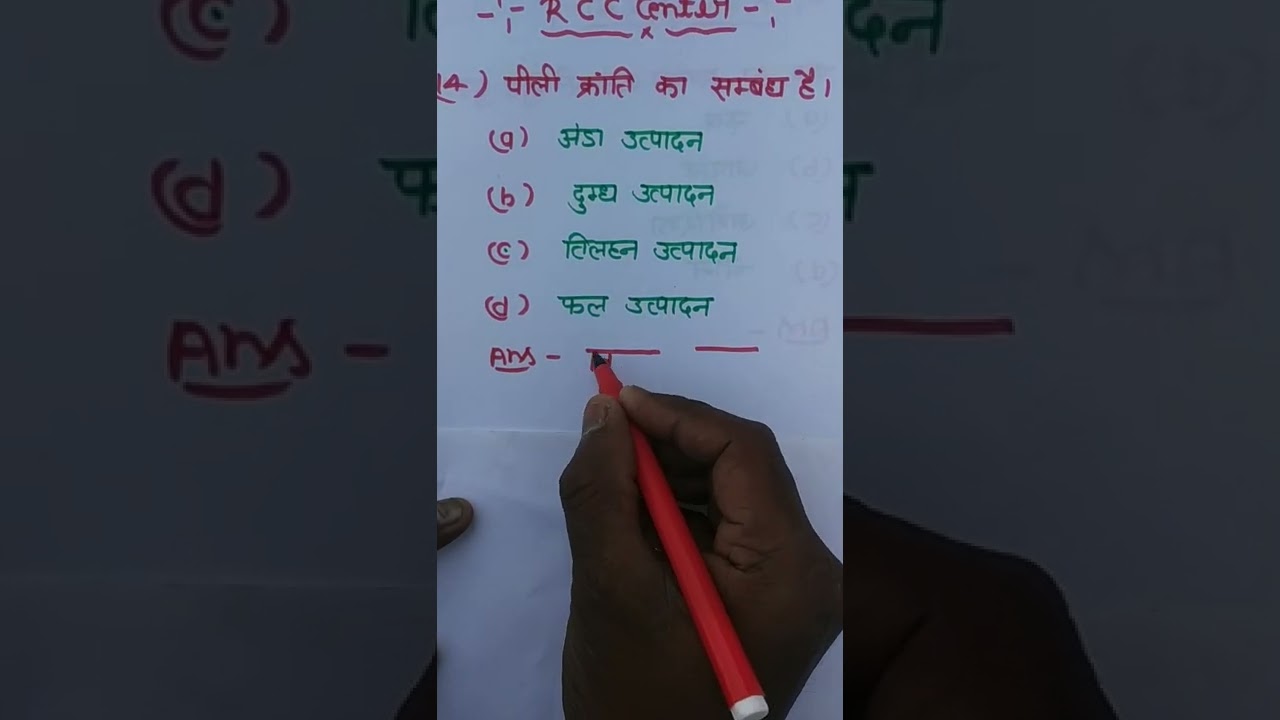 -:- RCC Center -:-
14) पीली क्रांति का सम्बंध है।
(a) अंडा उत्पादन
(b) दुग्ध उत्पादन
(c) तिलहन उत्पादन
(d) फल उत्पादन
Ans -